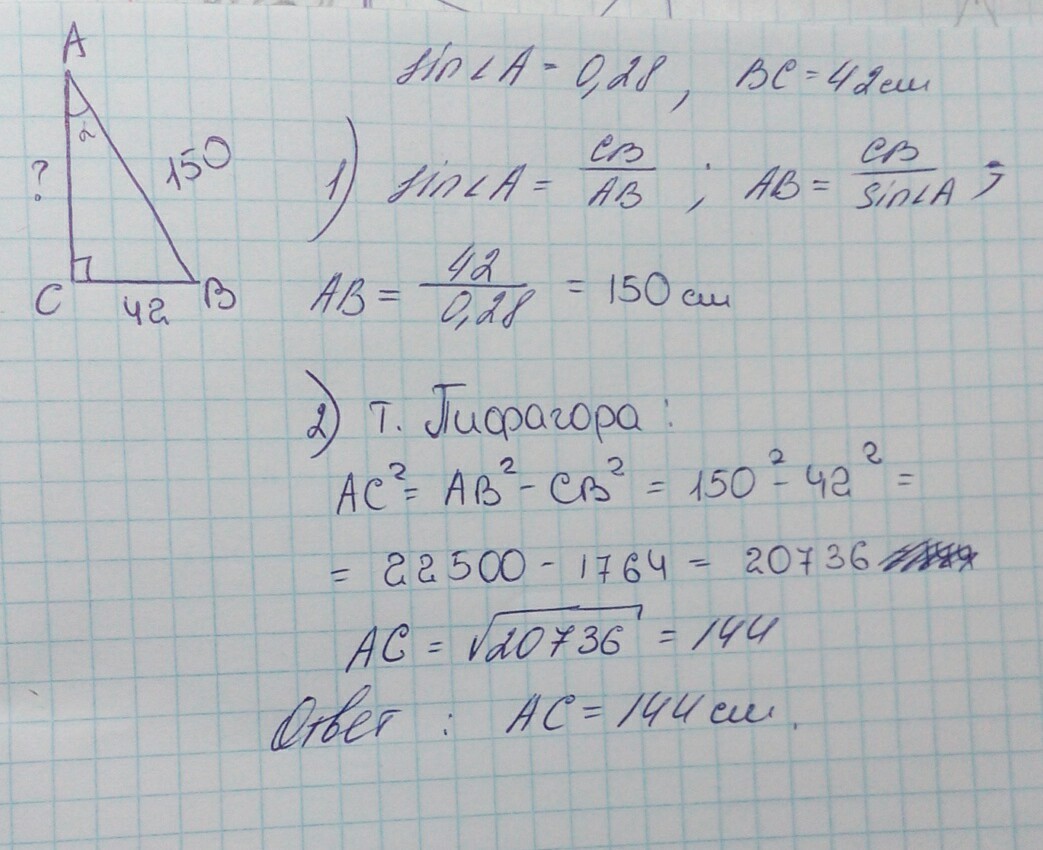 A
?
α
150
C
42
B
sin∠A = 0,28 , BC = 42см
1) sin∠A = CB/AB ; AB = CB/sin∠A ;
AB = 42/0,28 = 150 см
2) т. Пифагора :
AC² = AB² - CB² = 150² - 42² =
= 22500 - 1764 = 20736
AC = √20736 = 144
Ответ : AC = 144 см.